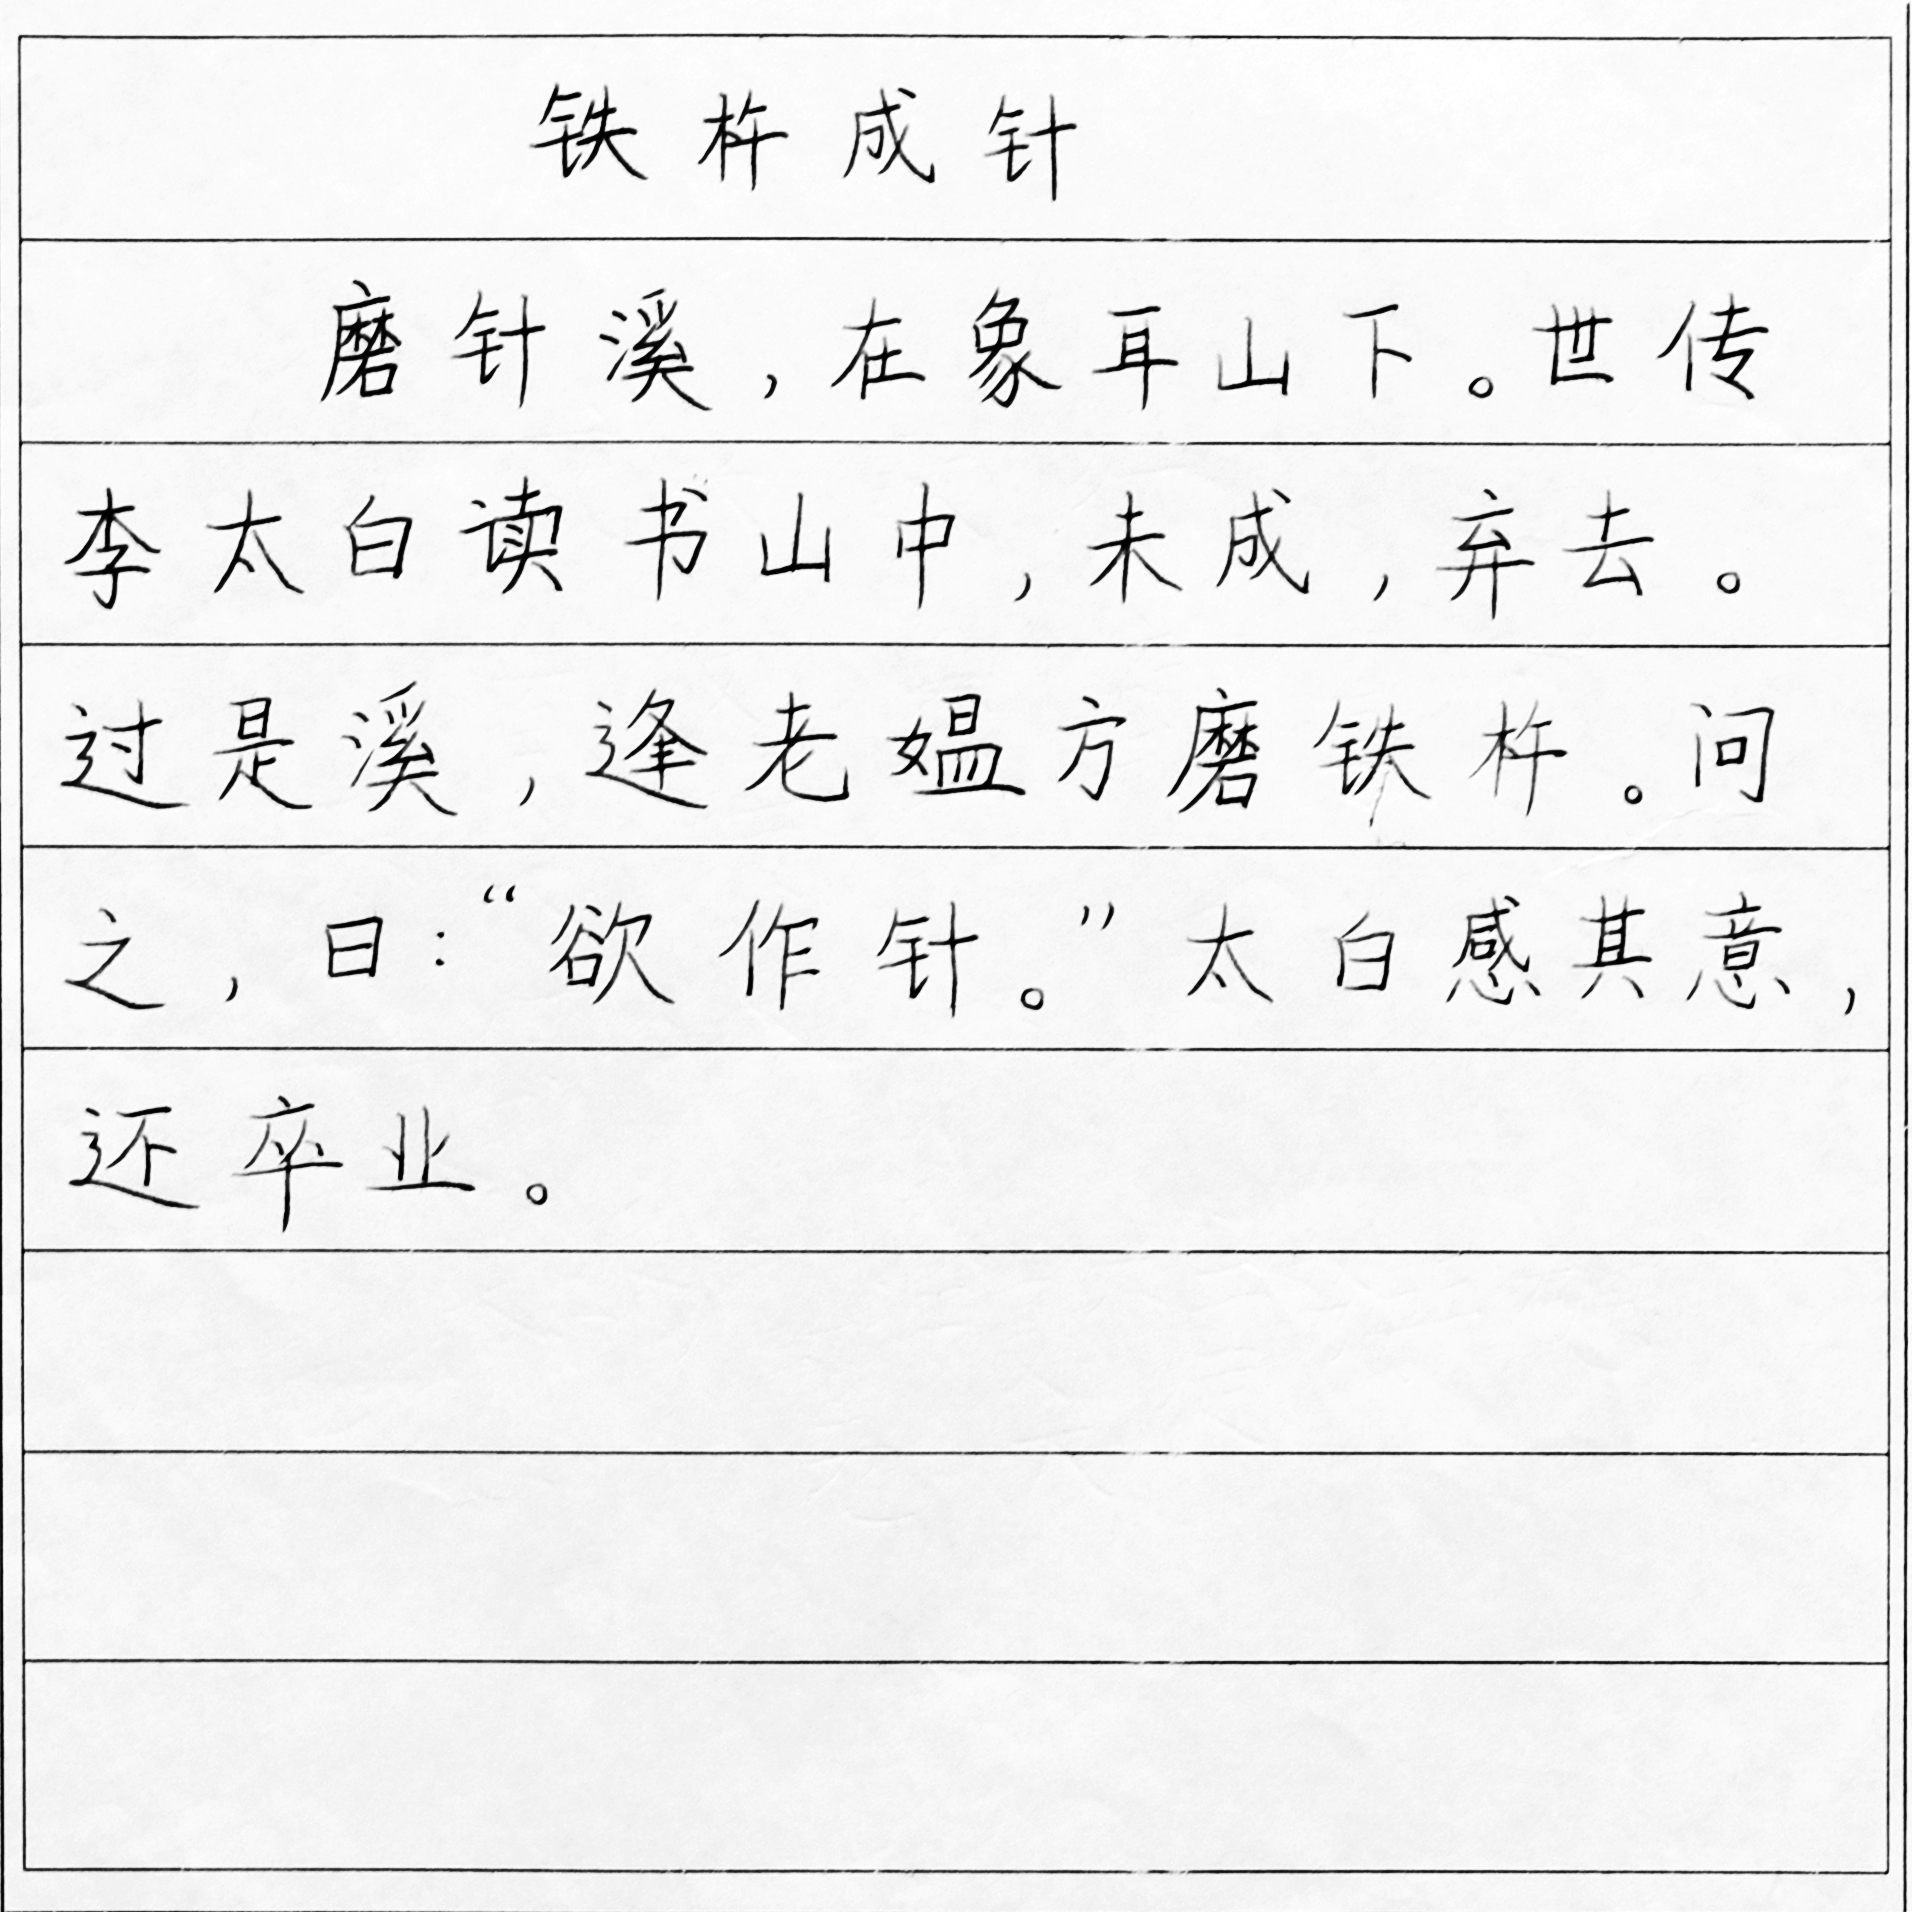 铁杵成针
磨针溪，在象耳山下。世传
李太白读书山中，未成，弃去。
过是溪，逢老媪方磨铁杵。问
之，曰：“欲作针。”太白感其意，
还卒业。